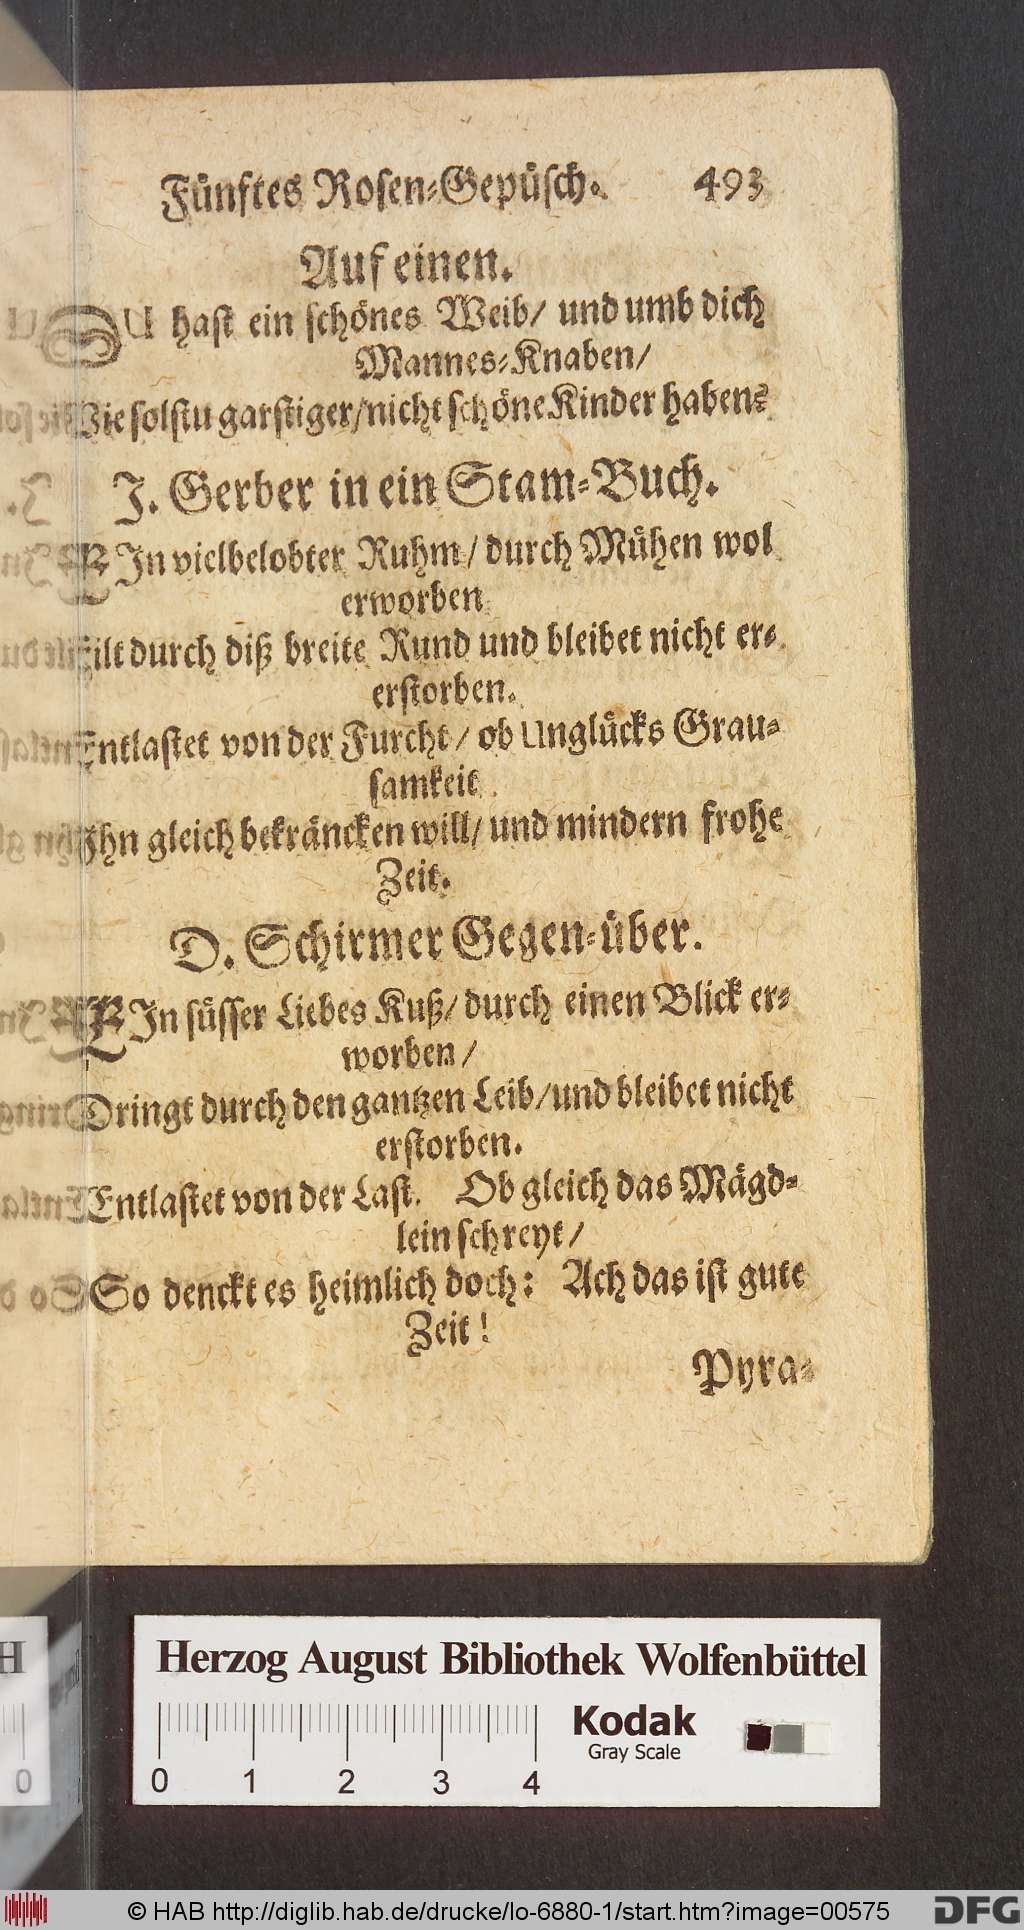 Fünftes Rosen-Gepüsch. 493
Auf einen.
DU hast ein schönes Weib/ und umb dich
Mannes-Knaben/
Wie solstu garstiger/nicht schöne Kinder haben?
J. Gerber in ein Stam-Buch.
EJn vielbelobter Ruhm/ durch Mühen wol
erworben
Eilt durch diß breite Rund und bleibet nicht er-
erstorben.
Entlastet von der Furcht/ ob Unglücks Grau-
samkeit
Ihn gleich bekräncken will/ und mindern frohe
Zeit.
D. Schirmer Gegen-über.
EJn süsser Liebes Kuß/ durch einen Blick er-
worben/
Dringt durch den gantzen Leib/und bleibet nicht
erstorben.
Entlastet von der Last. Ob gleich das Mägd-
lein schreyt/
So denckt es heimlich doch: Ach das ist gute
Zeit!
Pyra-
Herzog August Bibliothek Wolfenbüttel
Kodak
Gray Scale
0 1 2 3 4
© HAB http://diglib.hab.de/drucke/lo-6880-1/start.htm?image=00575
DFG